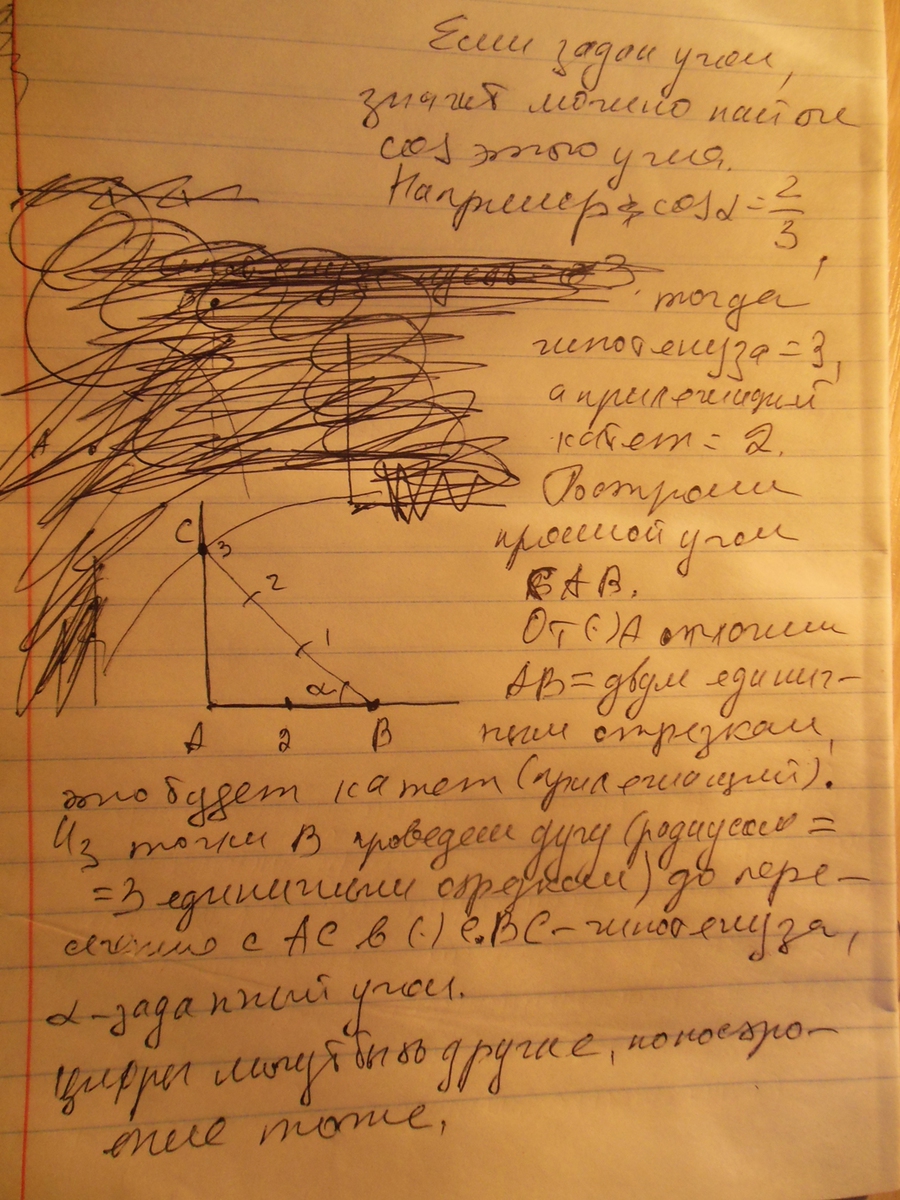 Если задан угол,
значит можно найти
cos этого угла.
Например, cosα = 2/3,
тогда
гипотенуза = 3,
а прилежащий
катет = 2.
Построим
прямой угол
САВ.
От (·)А отложим
АВ = двум единич-
ным отрезкам,
C
3
2
1
α
A 2 B
это будет катет (прилежащий).
Из точки В проведем дугу (радиусом =
= 3 единичным отрезкам) до пере-
сечения с АС в (·) С. ВС – гипотенуза,
α – заданный угол.
Цифры могут быть другие, но постро-
ение тоже.